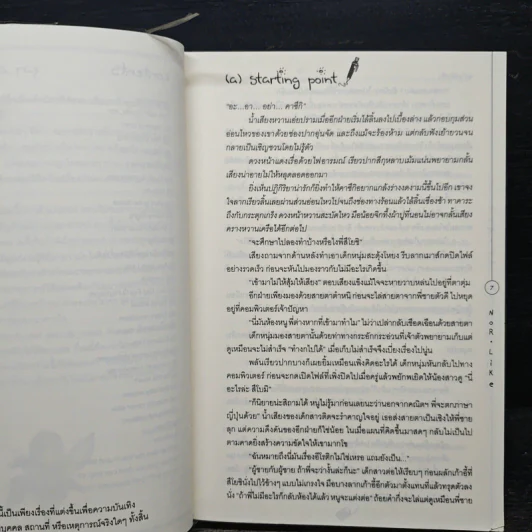 (a) starting point
"อะ...อา... อย่า... คาซึกิ"
น้ำเสียงหวานเอ่ยปรามเมื่ออีกฝ่ายเริ่มไล้ลิ้นลงไปเบื้องล่าง แล้วกอบกุมส่วน
อ่อนไหวของเขาด้วยช่องปากอุ่นจัด และถึงแม้จะร้องห้าม แต่กลับฟังเย้ายวนจน
กลายเป็นเชิญชวนโดยไม่รู้ตัว
ดวงหน้าแดงเรื่อด้วยไฟอารมณ์ เรียวปากสีกุหลาบเม้มแน่นพยายามกลั้น
เสียงน่าอายไม่ให้หลุดลอดออกมา
ยิ่งเห็นปฏิกิริยาน่ารักก็ยิ่งทำให้คาซึกิอยากแกล้งร่างงดงามนี้ขึ้นไปอีก เขาจง
ใจลากเรียวลิ้นเลยผ่านส่วนอ่อนไหวไปจนถึงช่องทางร้อนแล้วไล้ลิ้นเชื่องช้า ทาคาระ
ถึงกับกระตุกเกร็ง ดวงหน้าหวานสะบัดไหว มือน้อยจิกทึ้งผ้าปูที่นอนไม่อาจกลั้นเสียง
ครางหวานเครือได้อีกต่อไป
"จะศึกษาไปลองทำบ้างหรือไงพี่สึโยชิ"
เสียงถามจากด้านหลังทำเอาเด็กหนุ่มสะดุ้งโหยง รีบลากเมาส์กดปิดไฟล์
อย่างรวดเร็ว ก่อนจะหันไปมองราวกับไม่มีอะไรเกิดขึ้น
"เข้ามาไม่ให้สุ้มให้เสียง" ตอบเสียงแข็งแม้ใจจะหายวาบหล่นไปอยู่ที่ตาตุ่ม
อีกฝ่ายเพียงมองด้วยสายตาตำหนิ ก่อนจะไล่สายตาจากพี่ชายตัวดี ไปหยุด
อยู่ที่คอมพิวเตอร์เจ้าปัญหา
"นี่มันห้องหนู พี่ต่างหากที่เข้ามาทำไม" ไม่ว่าเปล่ากลับเชือดเฉือนด้วยสายตา
เด็กหนุ่มมองสายตานั้นด้วยท่าทางกระอักกระอ่วนที่เจ้าตัวพยายามเก็บแต่
ดูเหมือนจะไม่สำเร็จ "ทำงกไปได้" เมื่อเก็บไม่สำเร็จจึงเบี่ยงเรื่องไปนู่น
พลันเรียวปากบางก็เผยอยิ้มเหมือนเพิ่งคิดอะไรได้ เด็กหนุ่มหันกลับไปทาง
คอมพิวเตอร์ ก่อนจะกดเปิดไฟล์ที่เพิ่งปิดไปเมื่อครู่แล้วพยักพเยิดให้น้องสาวดู "นี่
อะไรล่ะ สึโบมิ"
"ก็นิยายน่ะสิถามได้ หนูไม่รู้มาก่อนเลยนะว่านอกจากคณิตฯ พี่จะตกภาษา
ญี่ปุ่นด้วย" น้ำเสียงของเด็กสาวติดจะรำคาญใจอยู่ เธอส่งสายตาเป็นเชิงให้พี่ชาย
ลุก แต่ความดึงดันของอีกฝ่ายก็ใช่น้อย ในเมื่อแผนที่คิดขึ้นมาสดๆ กลับไม่เป็นไป
ตามคาดยิ่งสร้างความขัดใจให้เขามากโข
"ฉันหมายถึงนี่มันเรื่องอีโรติกไม่ใช่เหรอ แถมยังเป็น..."
"ผู้ชายกับผู้ชาย ถ้าพี่จะว่างั้นล่ะก็นะ" เด็กสาวต่อให้เรียบๆ ก่อนผลักเก้าอี้ที่
สึโยชินั่งไปไว้ข้างๆ แบบไม่เกรงใจ มือบางลากเก้าอี้อีกตัวมาตั้งแทนที่แล้วทรุดตัวลง
นั่ง "ถ้าพี่ไม่มีอะไรก็กลับห้องได้แล้ว หนูจะแต่งต่อ" ถ้อยคำกึ่งจะไล่แต่ดูเหมือนพี่ชาย
7
NOR-Like
นี้เป็นเพียงเรื่องที่แต่งขึ้นเพื่อความบันเทิง
บุคคล สถานที่ หรือเหตุการณ์จริงใดๆ ทั้งสิ้น